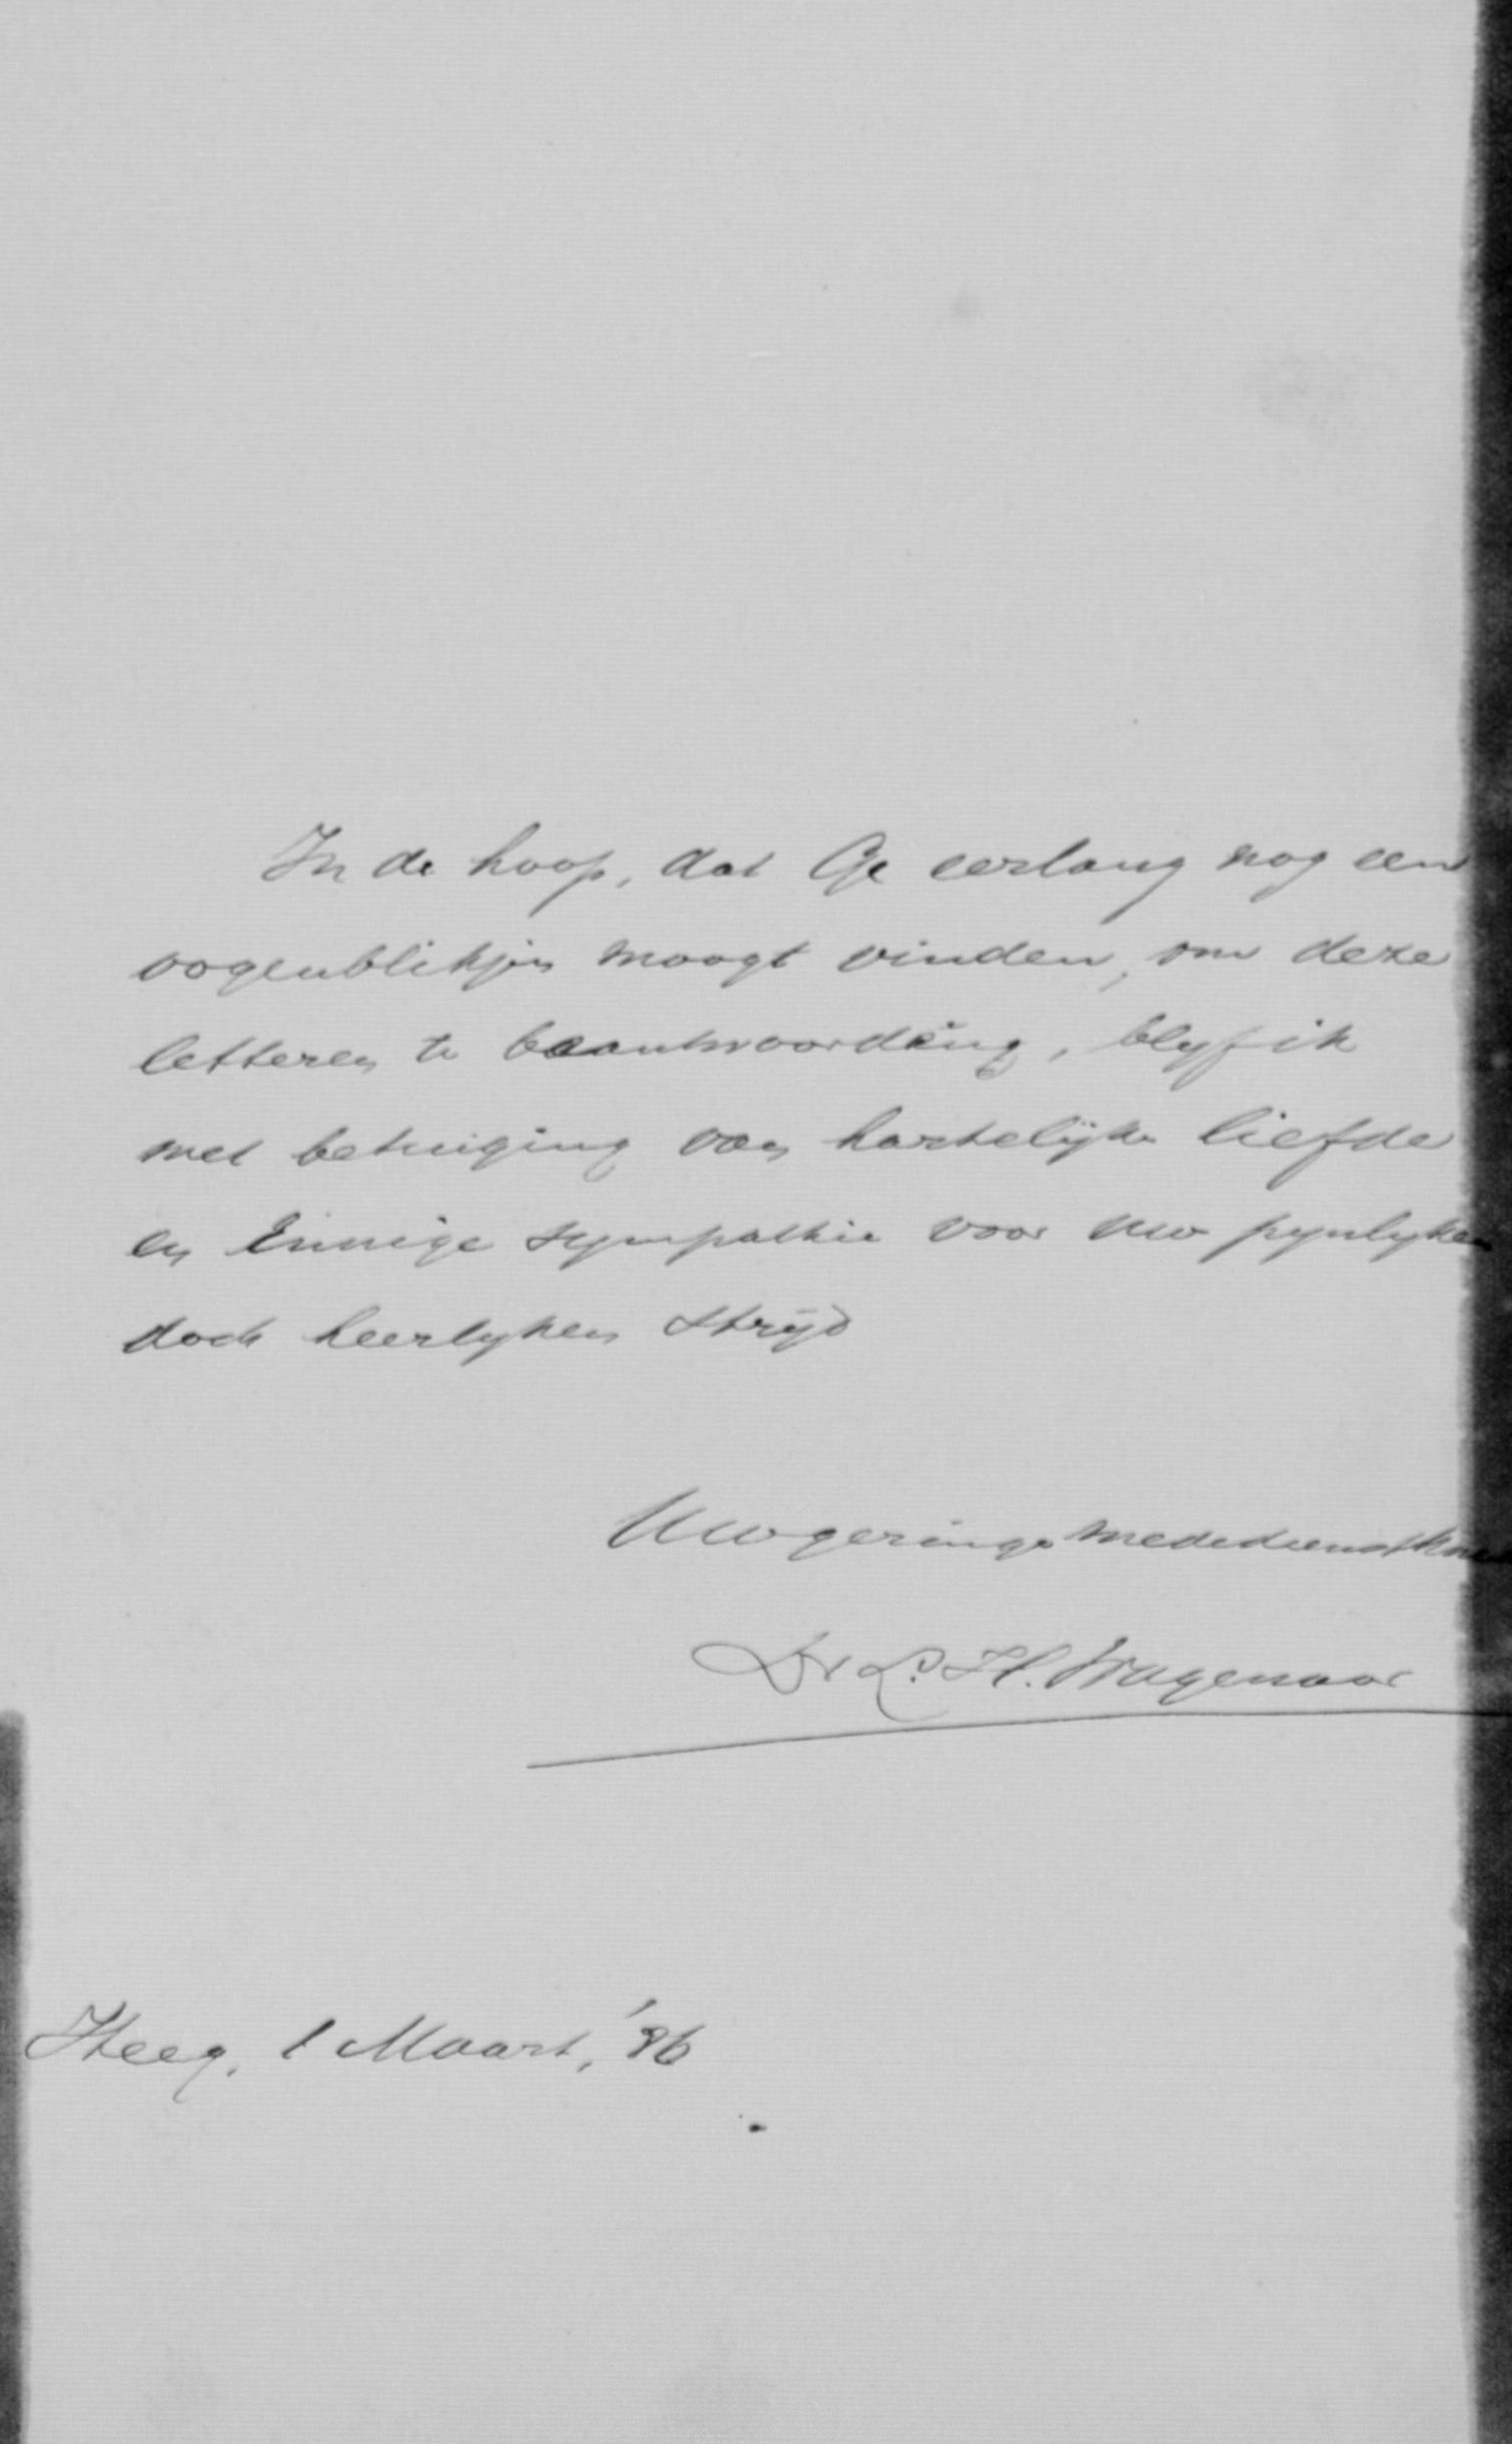 In de hoop, dat Ge eerlang nog een
oogenblikjen moogt vinden, om deze
letteren te beantwoording, blyf ik
met betuiging van hartelijke liefde
en innige sympathie voor Uw pynlyken
doch heerlyken strijd
Uw geringe mededienstkne
Dr L. H. Wagenaar
Heeg, 1 Maart, '86